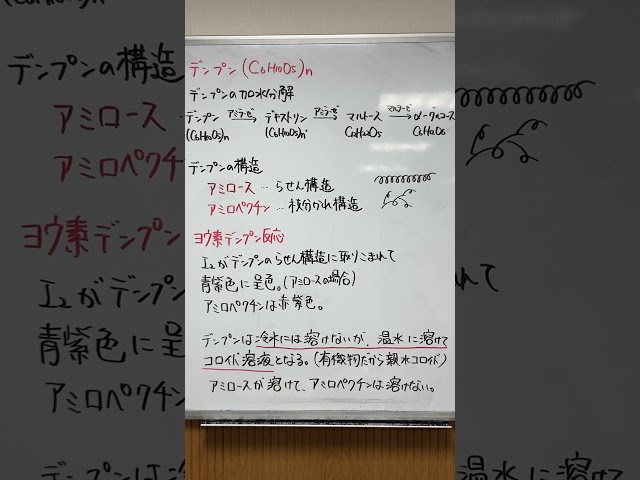 デンプン (C6H10O5)n
デンプンの加水分解
デンプン アミラーゼ→ デキストリン アミラーゼ→ マルトース マルターゼ→ α-グルコース
(C6H10O5)n (C6H10O5)n' C12H22O11 C6H12O6
デンプンの構造
アミロース … らせん構造
アミロペクチン … 枝分かれ構造
ヨウ素デンプン反応
I2がデンプンのらせん構造に取りこまれて
青紫色に呈色。(アミロースの場合)
アミロペクチンは赤紫色。
デンプンは冷水には溶けないが、温水に溶けて
コロイド溶液となる。(有機物だから親水コロイド)
アミロースが溶けて、アミロペクチンは溶けない。